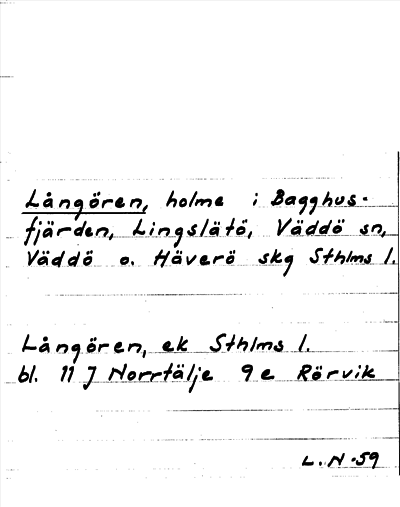 Långören, holme i Bagghus-
fjärden, Lingslätö, Väddö sn,
Väddö o. Häverö skg Sthlms l.
Långören, ek Sthlms l.
bl. 11 J Norrtälje 9 e Rörvik
L. N -59